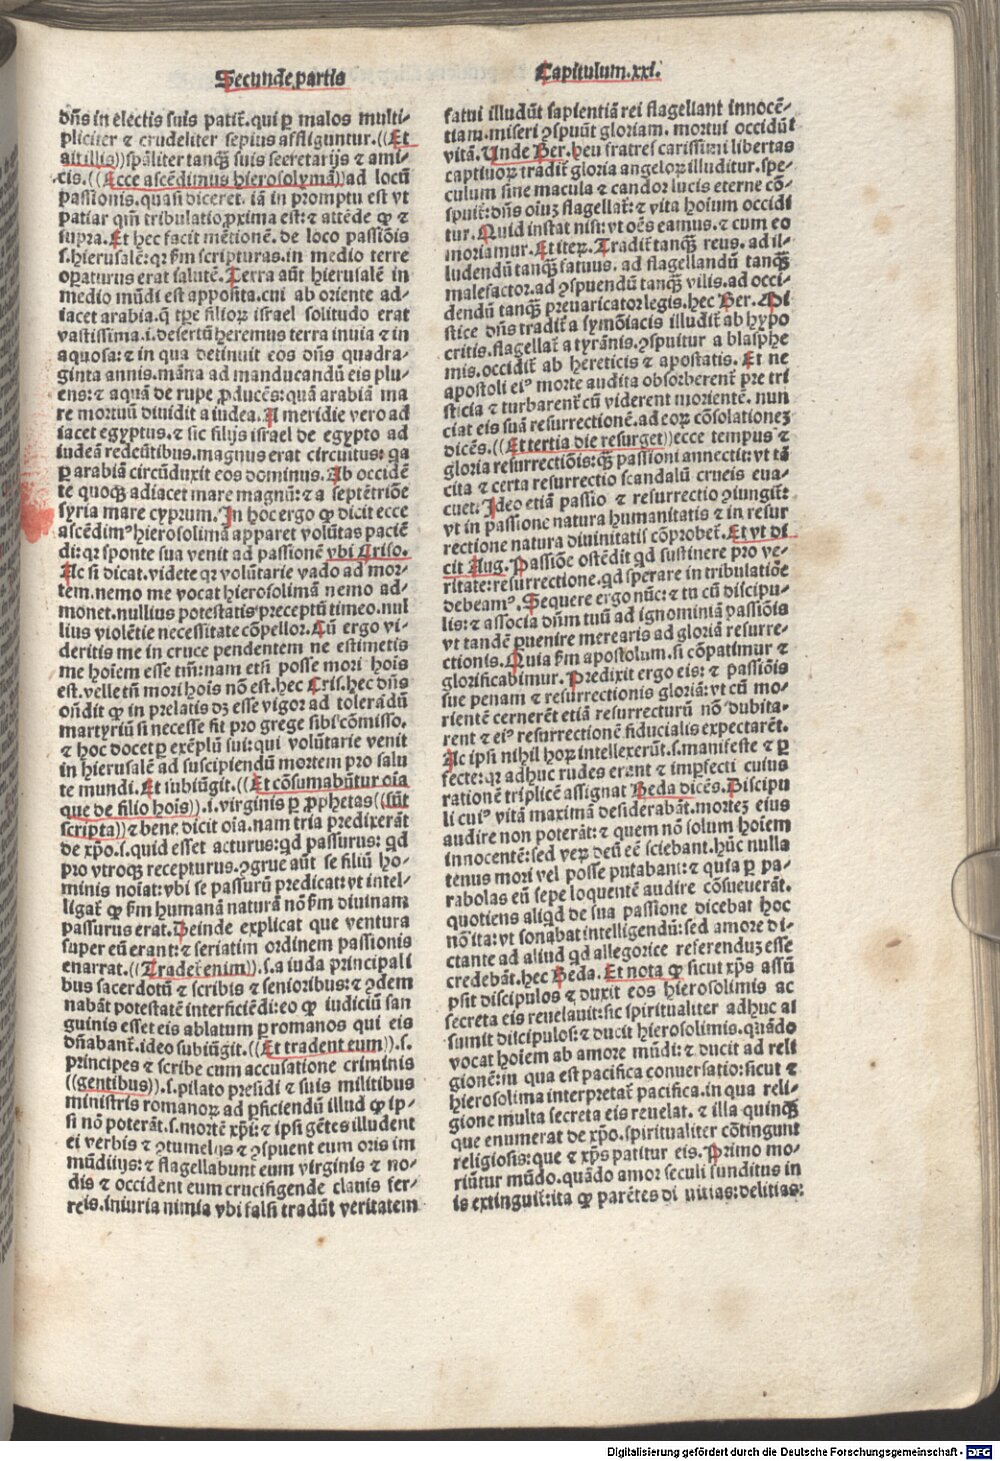 Secunde partis
Capitulum.xxi.
dñs in electis suis patit̃.qui ꝑ malos multi-
pliciter ⁊ crudeliter sepius affliguntur.((Et
ait illis))spãliter tanqȝ suis secretarijs ⁊ ami-
cis.((Ecce ascẽdimus hierosolymã))ad locũ
passionis.quasi diceret. iã in promptu est vt
patiar qm̃ tribulatio ꝓxima est:⁊ attẽde ꝙ ⁊
supra.Et hec facit mẽtionẽ.de loco passiõis
s.hierusalẽ:qꝛ ẜm scripturas.in medio terre
oꝑaturus erat salutẽ.Terra aũt hierusalẽ in
medio mũdi est apposita.cui ab oriente ad-
iacet arabia.q̃ tꝑe filioꝝ israel solitudo erat
vastissima.i.desertũ heremus terra inuia ⁊ in
aquosa:⁊ in qua detinuit eos dñs quadra-
ginta annis.mãna ad manducandũ eis plu-
ens:⁊ aquã de rupe ꝓducẽs:quã arabiã ma
re mortuũ diuidit a iudea.A meridie vero ad
iacet egyptus.⁊ sic filijs israel de egypto ad
iudeã redeũtibus.magnus erat circuitus: qa
ꝑ arabiã circũduxit eos dominus.Ab occidẽ
te quoqȝ adiacet mare magnũ:⁊ a septẽtriõe
syria mare cyprum.In hoc ergo ꝙ dicit ecce
ascẽdimꝰ hierosolimã apparet volũtas paciẽ
di:qꝛ sponte sua venit ad passionẽ vbi Criso.
Ac si dicat.videte qꝛ volũtarie vado ad mor-
tem.nemo me vocat hierosolimã nemo ad-
monet.nullius potestatis preceptũ timeo.nul
lius violẽtie necessitate cõpellor.Cũ ergo vi-
deritis me in cruce pendentem ne estimetis
me hoĩem esse tm̃:nam etsi posse mori hoĩs
est.velle tñ mori hoĩs nõ est.hec Cris.hec dñs
oñdit ꝙ in prelatis dȝ esse vigor ad tolerãdũ
martyriũ si necesse fit pro grege sibi cõmisso.
⁊ hoc docet ꝑ exẽplũ sui:qui volũtarie venit
in hierusalẽ ad suscipiendũ mortem pro salu
te mundi.Et subiũgit.((Et cõsumabũtur oĩa
que de filio hoĩs)).i.virginis ꝑ ꝓphetas((sũt
scripta))⁊ bene dicit oĩa.nam tria predixerãt
de xp̃o.s.quid esset acturus:qd passurus: qd
pro vtroqȝ recepturus.ꝯgrue aũt se filiũ ho-
minis noĩat:vbi se passurũ predicat:vt intel-
ligat̃ ꝙ ẜm humanã naturã nõ ẜm diuinam
passurus erat.Deinde explicat que ventura
super eũ erant:⁊ seriatim ordinem passionis
enarrat.((Tradet̃ enim)).s.a iuda principali
bus sacerdotũ ⁊ scribis ⁊ senioribus:⁊ ꝯdem
nabãt potestatẽ interficiẽdi:eo ꝙ iudiciũ san
guinis esset eis ablatum ꝑ romanos qui eis
dñabant̃.ideo subiũgit.((Et tradent eum)).s.
principes ⁊ scribe cum accusatione criminis
((gentibus)).s.pilato presidi ⁊ suis militibus
ministris romanoꝝ ad ꝑficiendũ illud ꝙ ip-
si nõ poterãt.s.mortẽ xp̃i:⁊ ipsi gẽtes illudent
ei verbis ⁊ ꝯtumelijs ⁊ ꝯspuent eum oris im
mũdiijs:⁊ flagellabunt eum virginis ⁊ no-
dis ⁊ occident eum crucifigende clauis fer-
reis.iniuria nimia vbi falsi tradũt veritatem
fatui illudũt sapientiã rei flagellant innocẽ-
tiam.miseri ꝯspuũt gloriam. mortui occidũt
vitã.Unde Ber.heu fratres carissimi libertas
captiuoꝝ tradit̃ gloria angeloꝝ illuditur.spe-
culum sine macula ⁊ candor lucis eterne cõ-
spuit̃:dñs oĩuȝ flagellat̃:⁊ vita hoĩum occidi
tur.Quid instat nisi:vt oẽs eamus.⁊ cum eo
moriamur.Et iteꝝ.Tradit̃ tanqȝ reus. ad il-
ludendũ tanqȝ fatuus. ad flagellandũ tanqȝ
malefactor.ad ꝯspuendũ tanqȝ vilis.ad occi-
dendũ tanqȝ preuaricator legis.hec Ber.Mi
stice dñs tradit̃ a symõiacis illudit̃ ab hypo
critis.flagellat̃ a tyrãnis.ꝯspuitur a blasphe
mis.occidit̃ ab hereticis ⁊ apostatis. Et ne
apostoli eiꝰ morte audita obsorberent̃ pre tri
sticia ⁊ turbarent̃ cũ viderent morientẽ. nun
ciat eis suã resurrectionẽ.ad eoꝝ cõsolationeȝ
dicẽs.((Et tertia die resurget))ecce tempus ⁊
gloria resurrectiõis:qȝ passioni annectit:vt tã
cita ⁊ certa resurrectio scandalũ crucis eua-
cuet.Ideo etiã passio ⁊ resurrectio ꝯiungit̃:
vt in passione natura humanitatis ⁊ in resur
rectione natura diuinitatis cõprobet̃.Et vt di
cit Aug.Passiõe ostẽdit qd sustinere pro ve-
ritate:resurrectione.qd sperare in tribulatiõe
debeamꝰ.Sequere ergo nũc:⁊ tu cũ discipu-
lis:⁊ associa dñm tuũ ad ignominiã passiõis
vt tandẽ ꝑuenire merearis ad gloriã resurre-
ctionis.Quia ẜm apostolum.si cõpatimur ⁊
glorificabimur.Predixit ergo eis: ⁊ passiõis
sue penam ⁊ resurrectionis gloriã:vt cũ mo-
rientẽ cernerẽt etiã resurrecturũ nõ dubita-
rent ⁊ eiꝰ resurrectionẽ fiducialis expectarẽt.
Ac ipsi nihil hoꝝ intellexerũt.s.manifeste ⁊ ꝑ
fecte:qꝛ adhuc rudes erant ⁊ imꝑfecti cuius
rationẽ triplicẽ assignat Beda dicẽs.Discipu
li cuiꝰ vitã maximã desiderabãt.morteȝ eius
audire non poterãt:⁊ quem nõ solum hoĩem
innocentẽ:sed veꝝ deũ eẽ sciebant.hũc nulla
tenus mori vel posse putabant:⁊ quia ꝑ pa-
rabolas eũ sepe loquentẽ audire cõsueuerãt.
quotiens aliqd de sua passione dicebat hoc
nõ ita:vt sonabat intelligendũ:sed amore di-
ctante ad aliud qd allegorice referenduȝ esse
credebãt.hec Beda.Et nota ꝙ sicut xp̃s assũ
psit discipulos ⁊ duxit eos hierosolimis ac
secreta eis reuelauit:sic spiritualiter adhuc as
sumit discipulos:⁊ ducit hierosolimis.quãdo
vocat hoĩem ab amore mũdi:⁊ ducit ad reli
gionẽ:in qua est pacifica conuersatio:sicut ⁊
hierosolima interpretat̃ pacifica.in qua reli-
gione multa secreta eis reuelat. ⁊ illa quinqȝ
que enumerat de xp̃o.spiritualiter cõtingunt
religiosis:que ⁊ xp̃s patitur eis.Primo mo-
riũtur mũdo.quãdo amor seculi funditus in
is extinguit̃:ita ꝙ parẽtes di uitias:delitias:
Digitalisierung gefördert durch die Deutsche Forschungsgemeinschaft - DFG